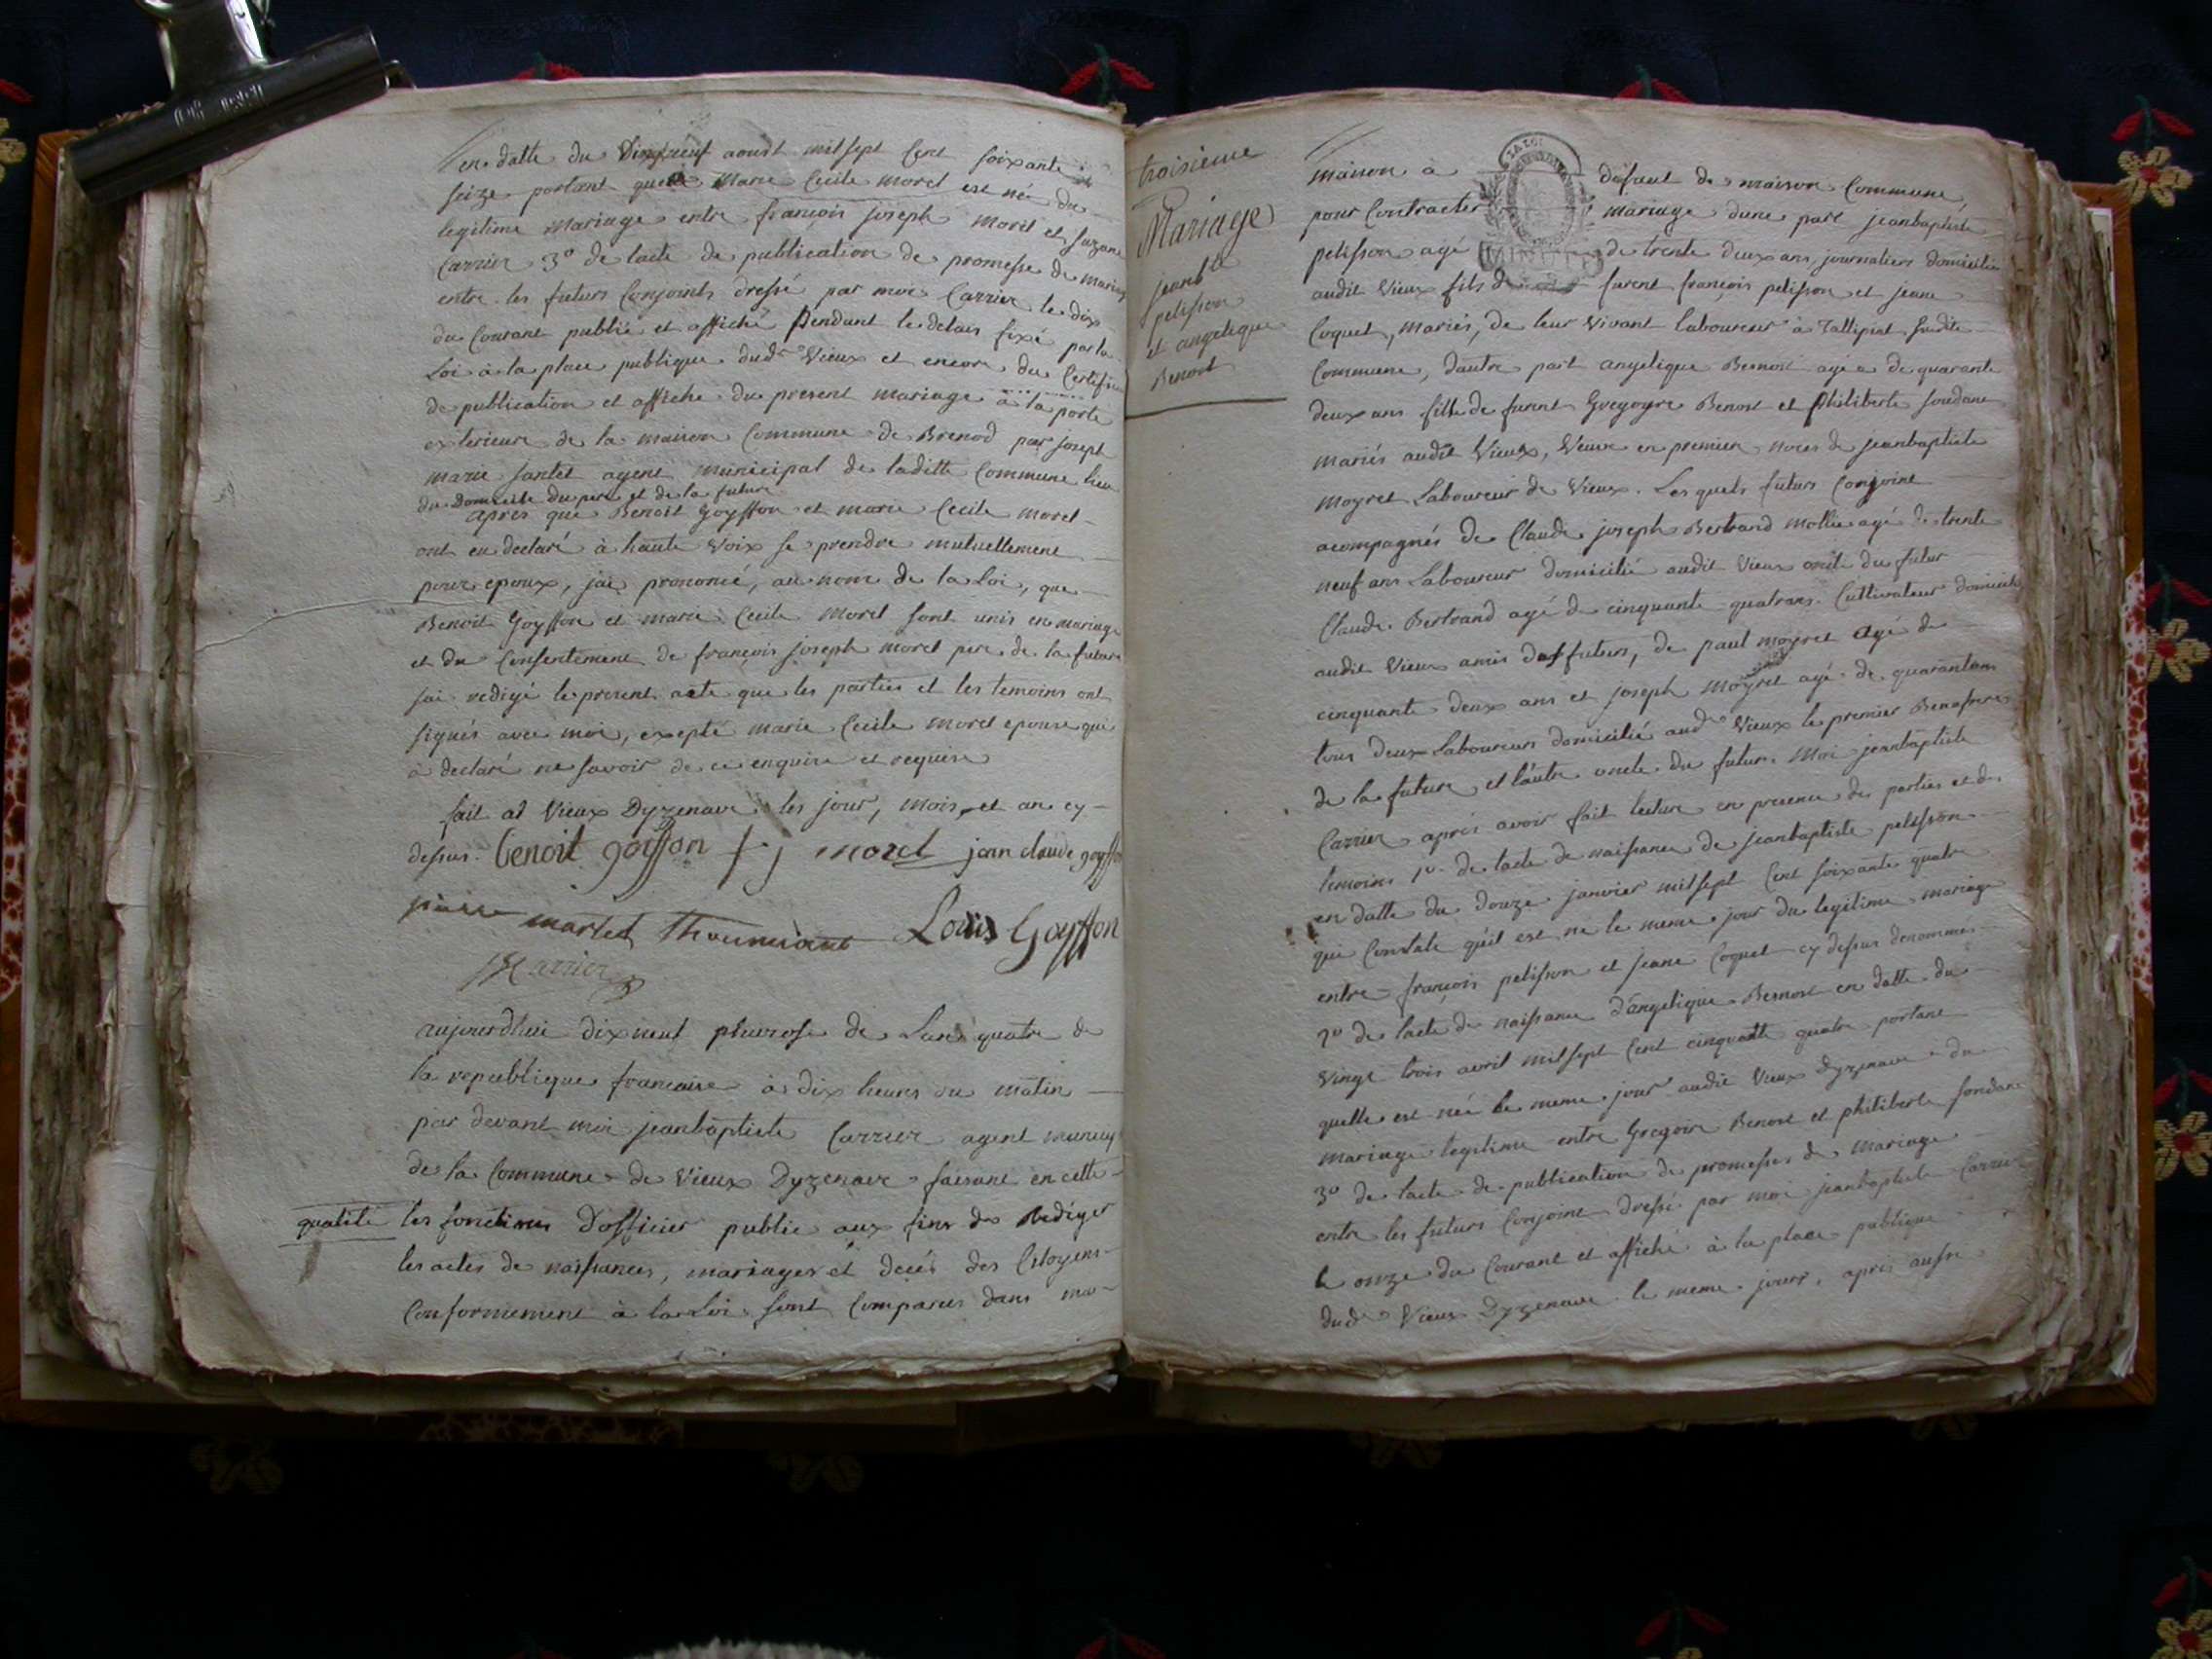 en datte du Dixneuf aoust mil sept Cent soixante
seize portant que Marie Cecile morel est née du
legitime Mariage entre françois joseph Morel et suzane
Carrier 3º de lacte de publication de promesse de mariag
entre les futurs Conjoints dressé par moi Carrier le dix
du Courant publié et affiché Pendant le delais fixé par la
Loi à la place publique dudt Vieux et encore du Certifica
de publication et affiche du present mariage à la porte
exterieure de la maison Commune de Brenod par joseph
marie santet agent municipal de laditte Commune lieu
du Domicile du pere et de la future
apres que Benoit Goyffon et marie Cecile morel
ont eu declaré à haute Voix se prendre mutuellement
pour epoux, jai prononcé, au nom de la Loi, que
Benoit Goyffon et marie Cecile Morel sont unis en mariage
et du Consentement de françois joseph morel pere de la future
jai redigé le present acte que les parties et les temoins ont
signés avec moi, excepté marie Cecile morel epouse qui
à declaré ne savoir de ce enquise et requise
fait at Vieux Dyzenave les jour, mois, et an cy
dessus. benoit goiffon f j morel jean claude goyffon
martel Louis Goyffon
JBCarrier
aujourdhui dixneuf pluviose de Lan quatre de
la republique francaise à dix heures du matin
par devant moi jeanbaptiste Carrier agent municip
de la Commune de Vieux Dyzenave faisant en cette
qualité les fonctions Dofficier public aux fins de Rediger
les actes de naissances, mariages et decés des Citoyens
Conformement à la Loi sont Comparus dans ma
troisieme
Mariage
jean bte
pelisson
et angelique
Benoit
LA LOI
maison à defaut de maison Commune,
pour Contracter mariage dune part jeanbaptiste
pelisson agé de trente deux ans journalier domicilié
audit Vieux fils de furent françois pelisson et jeane
Coquet, Mariés, de leur Vivant laboureur à Tallipiat susdite
Commune, dautre part angelique Benoit agé e de quarante
deux ans fille de furent Gregoyre Benoit et Philiberte fondane
mariés audit Vieux, Veuve en premier noces de jeanbaptiste
moyret Laboureur de Vieux. Les quels futurs Conjoint
acompagnés de Claude joseph Bertrand mollie agé de trente
neuf ans Laboureur domicilié audit Vieux du futur
Claude Bertrand agé de cinquante quatrans Cultivateur domicilié
audit Vieux amis des futurs, de paul moyret agé de
cinquante deux ans et joseph moyret agé de quarantans
tous deux Laboureurs domicilié aud Vieux le premier Beaufrere
de la future et lautre oncle du futur. Moi jeanbaptiste
Carrier aprés avoir fait lecture en presence des parties et des
temoins 1º de lacte de naissance de jeanbaptiste pelisson
en datte du douze janvier mil sept Cent soixante quatre
qui Constate qu'il est né le meme jour du legitime mariage
entre françois pelisson et jeane Coquet cy dessus denommés
2º de lacte de naissance d'angelique Benoit en datte du
vingt trois avril mil sept Cent cinquante quatre portant
quelle est née le meme jour audit Vieux Dyzenave du
mariage legitime entre Gregoire Benoit et philiberte fondane
3º de lacte de publication de promesse de Mariage
entre les futurs Conjoint dressé par moi jeanbaptiste Carrier
le onze du Courant et affiché à la place publique
dudt Vieux Dyzenave le meme jour, aprés aussi